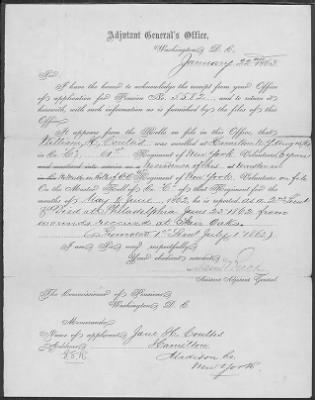 Adjutant General's Office,
Washington, D. C.
January 22nd 1863
Sir:
I have the honor to acknowledge the receipt from your Office
of application for Pension No. and to return it
herewith, with such information as is furnished by the files of this
Office.
It appears from the Rolls on file in this Office, that
William H. was enrolled at Hamilton N.Y.
in Co. 61st Regiment of New York Volunteers
and mustered into service as a
in Regiment of New York Volunteers on file
On the Muster Roll of Co. of that Regiment for the
months of May & June, 1862, he is reported as a 2nd Lieut
"Died at Philadelphia June 23 1862 from
wounds received at Fair Oaks.
1st Lieut July 1 1862)
I am Sir, very respectfully,
Your obedient servant,
Assistant Adjutant General.
The Commissioner of Pensions
Washington, D. C.
Memoranda:
Name of applicant, Jane H.
Address, Hamilton
Madison Co.
New York.